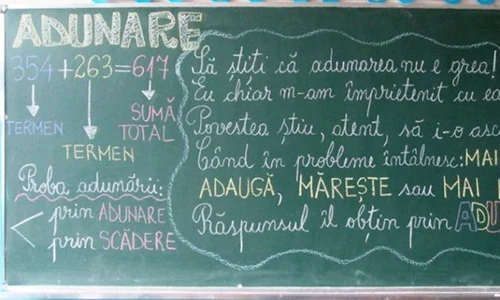 ADUNARE
354+263=617
TERMEN
TERMEN
SUMĂ
TOTAL
Proba adunării:
prin ADUNARE
prin SCĂDERE
Să știți că adunarea nu e grea!
Eu chiar m-am împrietenit cu ea
Povestea știu, atent, să i-o asc
Când în probleme întâlnesc: MAI
ADAUGĂ, MĂREȘTE sau MAI
Răspunsul îl obțin prin ADU